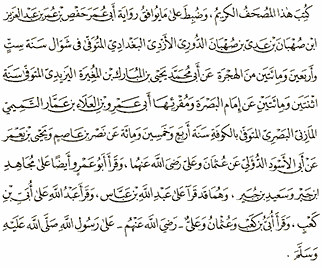 كُتِبَ هٰذَا المُصْحَفُ الكَرِيمُ، وَضُبِطَ عَلَى مَا يُوَافِقُ رِوَايَةَ أَبِي عُمَرَ حَفْصِ بْنِ عُمَرَ بْنِ عَبْدِ العَزِيزِ
ابْنِ صُهْبَانَ بْنِ عَدِيِّ بْنِ صُهْبَانَ الدُّورِيِّ الأَزْدِيِّ البَغْدَادِيِّ المُتَوَفَّى فِي شَوَّالٍ سَنَةَ سِتٍّ
وَأَرْبَعِينَ وَمِائَتَيْنِ مِنَ الهِجْرَةِ عَنْ أَبِي مُحَمَّدٍ يَحْيَى بْنِ المُبَارَكِ بْنِ المُغِيرَةِ اليَزِيدِيِّ المُتَوَفَّى سَنَةَ
اثْنَتَيْنِ وَمِائَتَيْنِ عَنْ إِمَامِ البَصْرَةِ وَمُقْرِئِهَا أَبِي عَمْرِو بْنِ العَلَاءِ بْنِ عَمَّارٍ التَّمِيمِيِّ
المَازِنِيِّ البَصْرِيِّ المُتَوَفَّى بِالكُوفَةِ سَنَةَ أَرْبَعٍ وَخَمْسِينَ وَمِائَةٍ عَنْ نَصْرِ بْنِ عَاصِمٍ وَيَحْيَى بْنِ يَعْمَرَ
عَنْ أَبِي الأَسْوَدِ الدُّؤَلِيِّ عَنْ عُثْمَانَ وَعَلِيٍّ رَضِيَ اللهُ عَنْهُمَا، وَقَرَأَ أَبُو عَمْرٍو أَيْضًا عَلَى مُجَاهِدِ
ابْنِ جَبْرٍ وَسَعِيدِ بْنِ جُبَيْرٍ، وَهُمَا قَدْ قَرَآ عَلَى عَبْدِ اللهِ بْنِ عَبَّاسٍ، وَقَرَأَ عَبْدُ اللهِ عَلَى أُبَيِّ بْنِ
كَعْبٍ، وَقَرَأَ أُبَيُّ بْنُ كَعْبٍ وَعُثْمَانُ وَعَلِيٌّ - رَضِيَ اللهُ عَنْهُمْ - عَلَى رَسُولِ اللهِ صَلَّى اللهُ عَلَيْهِ
وَسَلَّمَ.